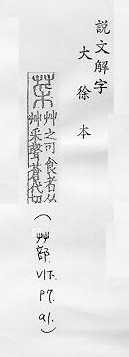 說文解字
大徐本
菜 艸之可食者从
艸采聲蒼代切
(艸部. VI下. P7. a1.)